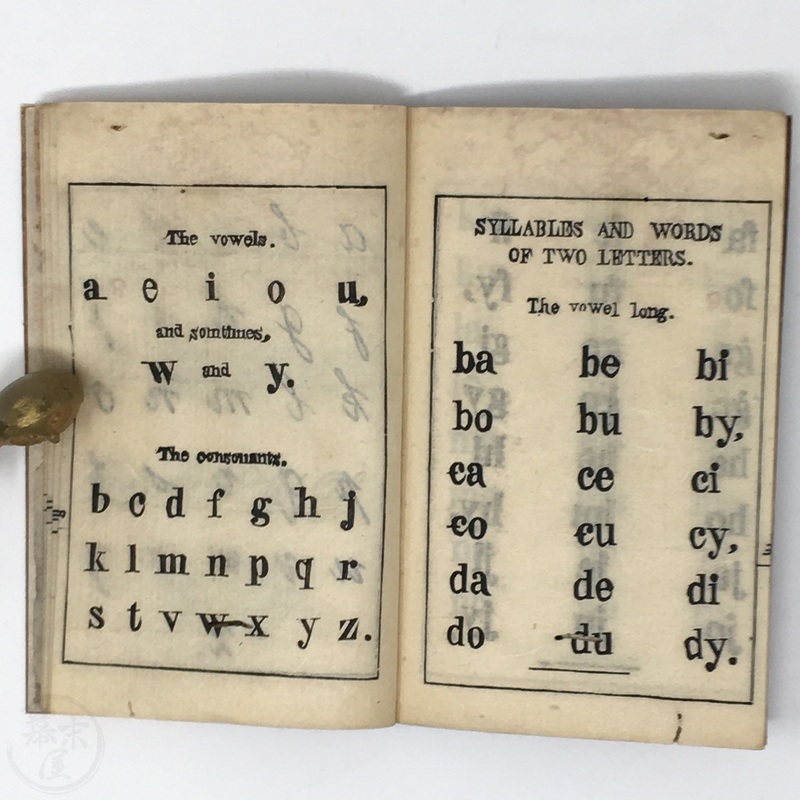 The vowels.
a e i o u,
and somtimes,
w and y.
The consonants.
b c d f g h j
k l m n p q r
s t v w x y z.
SYLLABLES AND WORDS
OF TWO LETTERS.
The vowel long.
ba be bi
bo bu by,
ca ce ci
co cu cy,
da de di
do du dy.